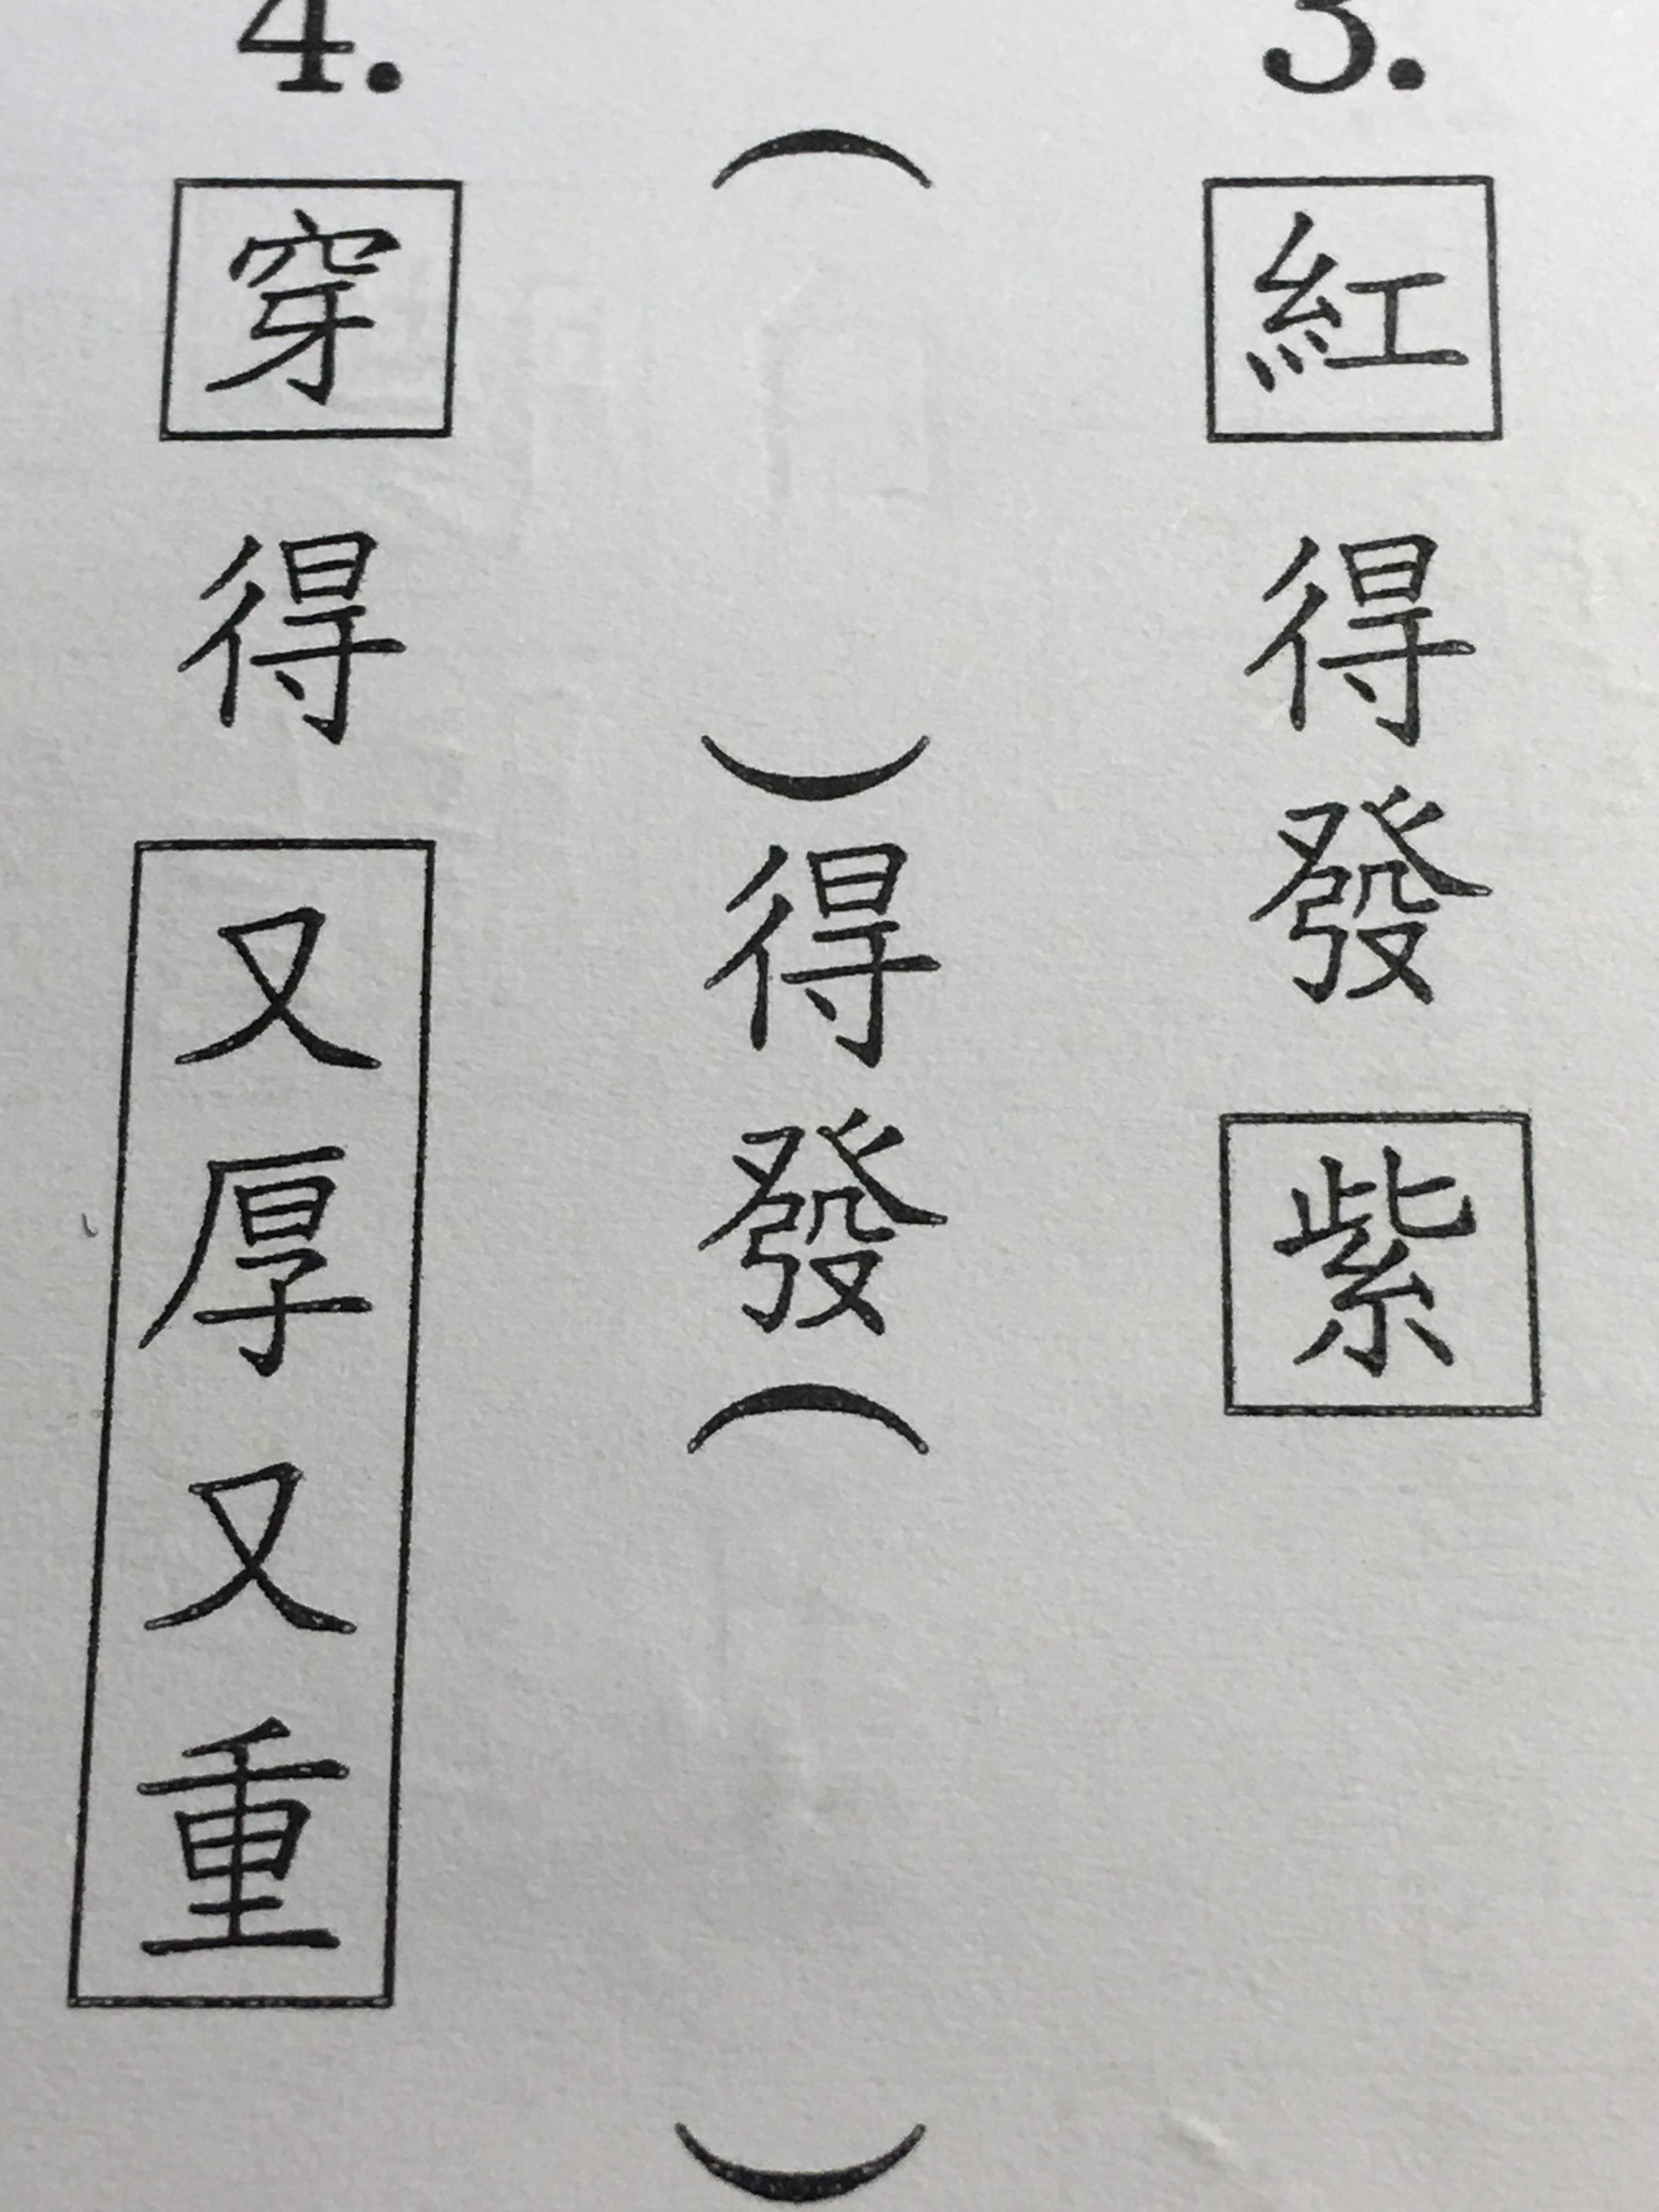 3. 紅得發紫
（ ）得發（ ）
4. 穿得又厚又重